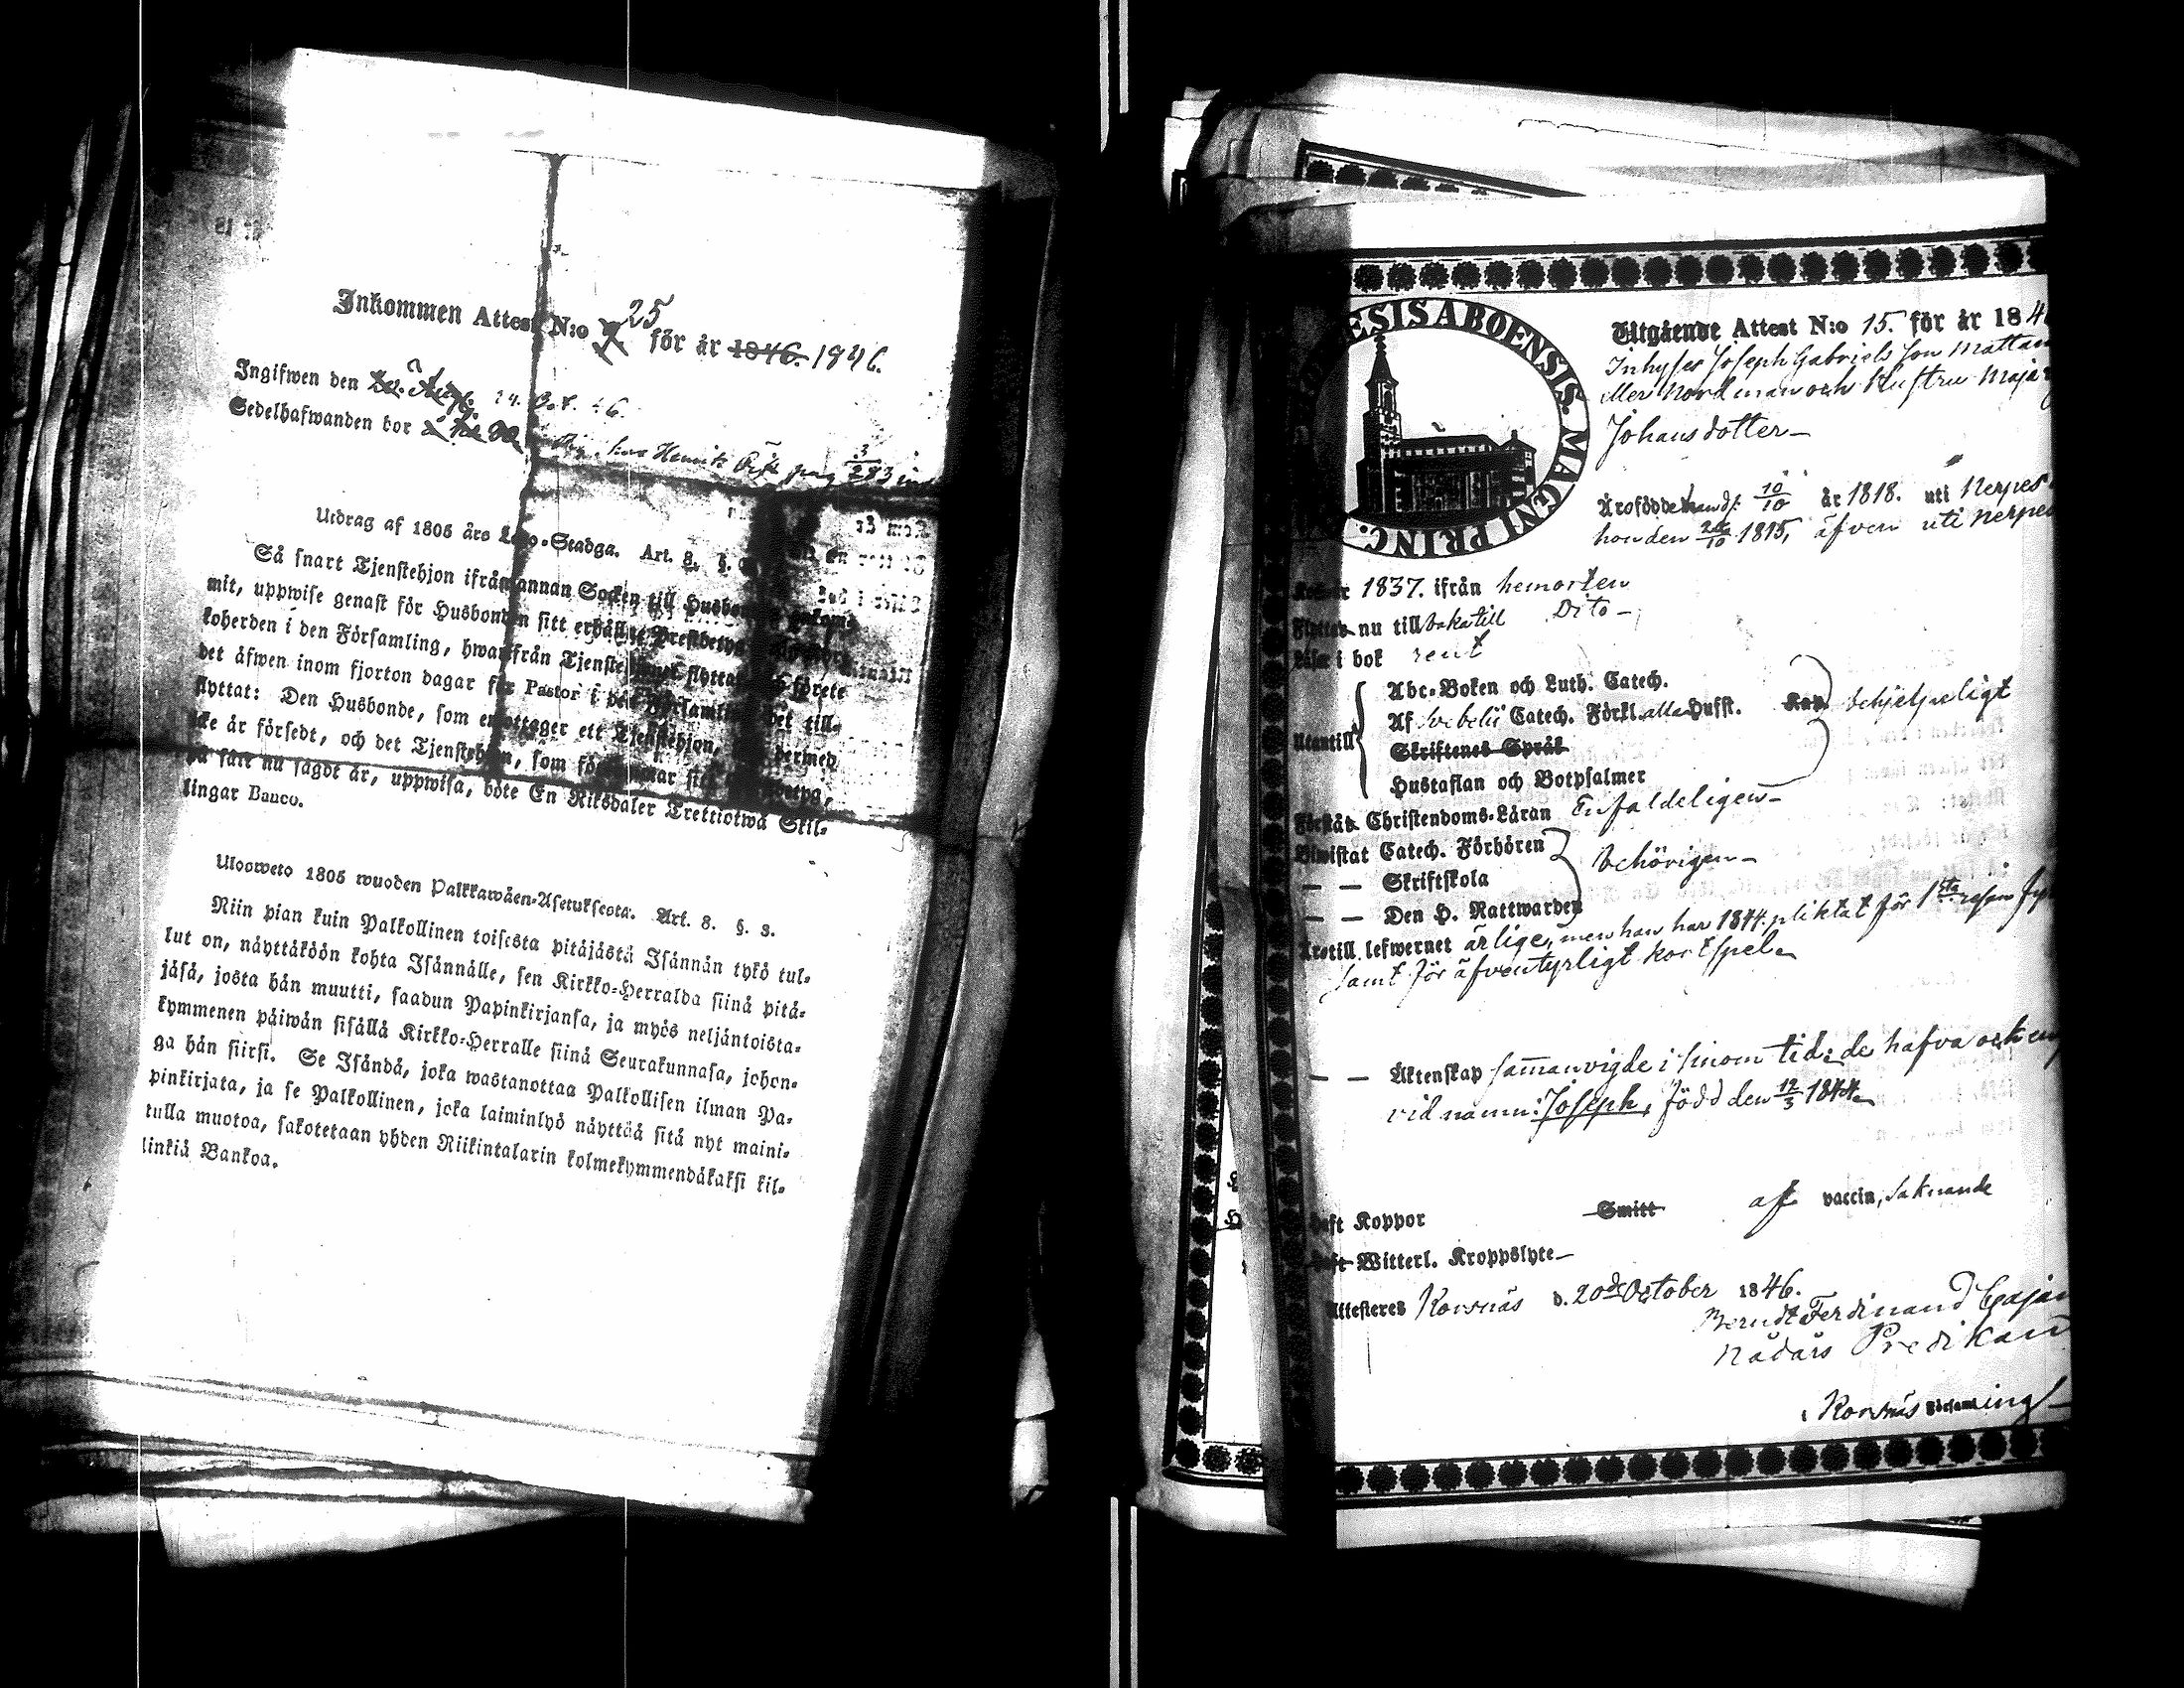 Inkommen Attest N:o 25 för år 1846. 1846.
Ingifwen den
Sedelhafwanden bor
hos Henrik
Utdrag af 1805 års Lego-Stadga. Art. 8. §.
Så snart Tjenstehjon ifrån annan Socken till Husbonden
mit, uppwise genast för Husbonden sitt erhållne Prestbetyg
koherden i den Församling, hwarifrån Tjenstehjonet flyttat, förete
det äfwen inom fjorton dagar för Pastor i den Församling det till-
flyttat: Den Husbonde, som emottager ett Tjenstehjon, dermed
icke är försedt, och det Tjenstehjon, som försummar
på sätt nu sagdt är, uppwisa, böte En Riksdaler Trettiotwå Skil-
lingar Banco.
Uloswето 1805 wuoden Palkkawäen-Asetuksesta. Art. 8. §. 3.
Niin pian kuin Palkollinen toisesta pitäjästä Isännän tykö tul-
lut on, näyttäköön kohta Isännälle, sen Kirkko-Herralda siinä pitä-
jäsä, josta hän muutti, saadun Papinkirjansa, ja myös neljäntoista-
kymmenen päiwän sisällä Kirkko-Herralle siinä Seurakunnasa, johon-
ga hän siirsi. Se Isändä, joka wastanottaa Palkollisen ilman Pa-
pinkirjata, ja se Palkollinen, joka laiminlyö näyttää sitä nyt maini-
tulla muotoa, sakotetaan yhden Riikintalarin kolmekymmendäkaksi kil-
linkiä Bankoa.
ESIS ABOENSIS. MAGNI PRINC.
Utgående Attest N:o 15. för år 184
Inhyses Joseph Gabriels Son Mattans
eller Nordman och Hustru Maja
Johansdotter
Äro födde han d: 10/10 år 1818. uti Nerpes
hon den 24/10 1815, äfven uti Nerpes
1837. ifrån hemorten
Flyttar nu till baka till Dito
Läser i bok rent
Utantill
Abc-Boken och Luth. Catech.
Af Svebelii Catech. Förkl. alla Hufst. Kap. behjelpeligt
Skriftenes Språk
Hustaflan och Botpsalmer
Förstår Christendoms-Läran Enfaldeligen
Biwistat Catech. Förhören behörigen
— — Skriftskola
— — Den H. Nattwarden
Äro till lefwernet ärlige, men han har 1844 pliktat för 1sta resan
samt för äfventyrligt kortspel
— — Äktenskap sam̅anvigde i sinom tid: de hafva ock en
vid namn: Joseph, född den 12/3 1844
Haft Koppor Smitt af vaccin, saknande
Haft Witterl. Kroppslyte
Attesteres Korsnäs d. 20de October 1846.
Berndt Ferdinand
Nådårs Predikant
i Korsnäs Församling